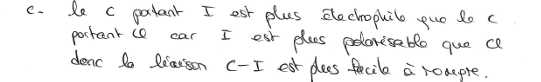 c- le C portant I est plus électrophile que le C
portant Cl car I est plus polarisable que Cl
donc la liaison C-I est plus facile à rompre.